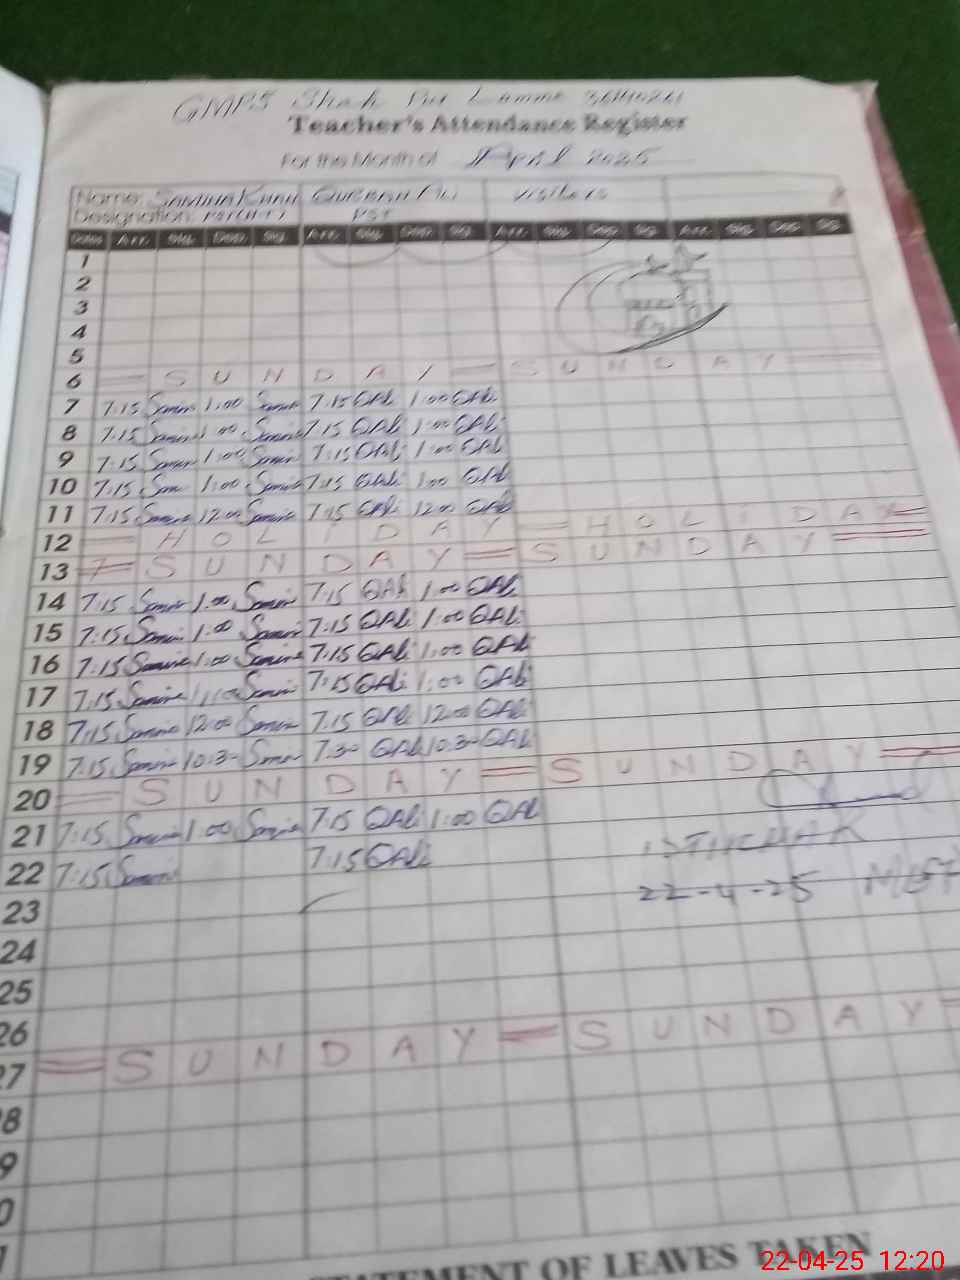 GMPS Shah Pur Lamma
Teacher's Attendance Register
For the Month of April 2025
Name: Samina Kunal Qurban Ali Visitors
Designation: PST
Dates Arr. Sig. Dep. Sig. Arr. Sig. Dep. Sig. Arr. Sig. Dep. Sig. Arr. Sig. Dep. Sig.
1
2
3
4
5
6 = SUNDAY = SUNDAY =
7 7:15 Samina 1:00 Samina 7:15 QAli 1:00 QAli
8 7:15 Samina 1:00 Samina 7:15 QAli 1:00 QAli
9 7:15 Samina 1:00 Samina 7:15 QAli 1:00 QAli
10 7:15 Sam 1:00 Samina 7:15 QAli 1:00 QAli
11 7:15 Samina 12:00 Samina 7:15 QAli 12:00 QAli
12 = HOLIDAY = HOLIDAY =
13 = SUNDAY = SUNDAY =
14 7:15 Samina 1:00 Samina 7:15 QAli 1:00 QAli
15 7:15 Samina 1:00 Samina 7:15 QAli 1:00 QAli
16 7:15 Samina 1:00 Samina 7:15 QAli 1:00 QAli
17 7:15 Samina Samina 7:15 QAli 1:00 QAli
18 7:15 Samina 12:00 Samina 7:15 QAli 12:00 QAli
19 7:15 Samina 10:3- Samina 7:30 QAli 10:3- QAli
20 = SUNDAY = SUNDAY =
21 7:15 Samina 1:00 Samina 7:15 QAli 1:00 QAli
22 7:15 Samina 7:15 QAli
22-4-25
23
24
25
26
27 = SUNDAY = SUNDAY
8
9
0
1
STATEMENT OF LEAVES TAKEN
22-04-25 12:20